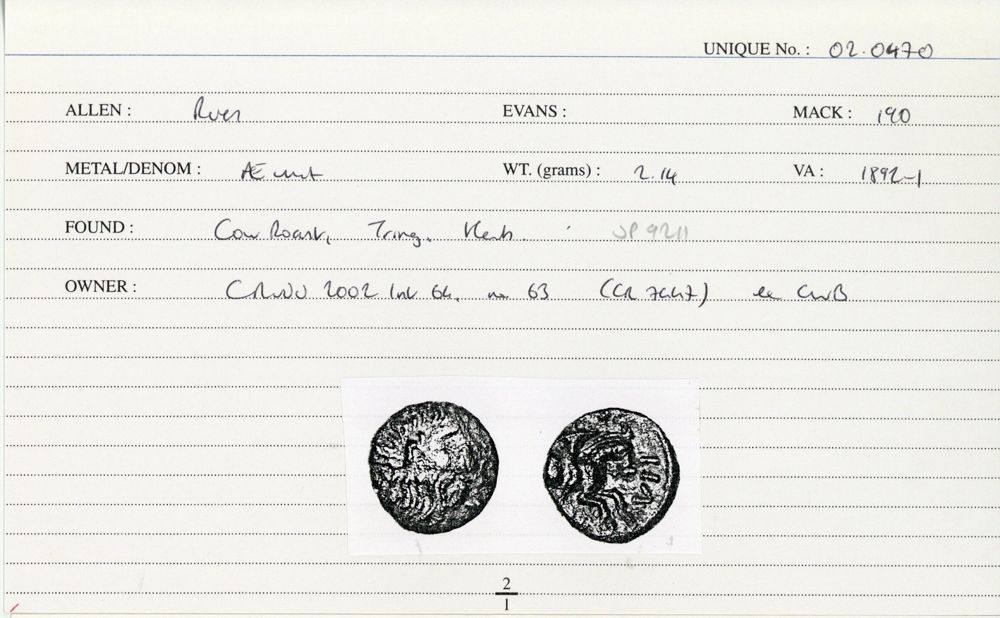 UNIQUE No. : 02.0470
ALLEN : River EVANS : MACK : 190
METAL/DENOM : Æ unit WT. (grams) : 2.14 VA : 1892-1
FOUND : Cow Roast, Tring, Herts. SP 9211
OWNER : CRWN 2002 List 64, no 63 (CR 7447) ex CWB
2
1